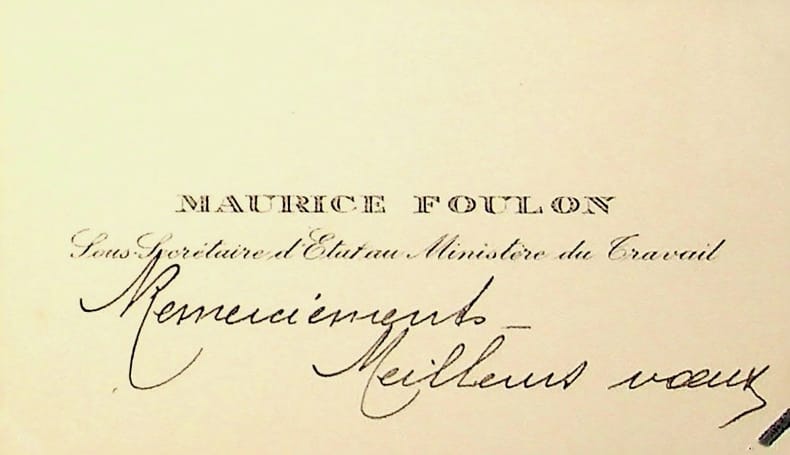 MAURICE FOULON
Sous-Secrétaire d'Etat au Ministère du Travail
Remerciements –
Meilleurs vœux